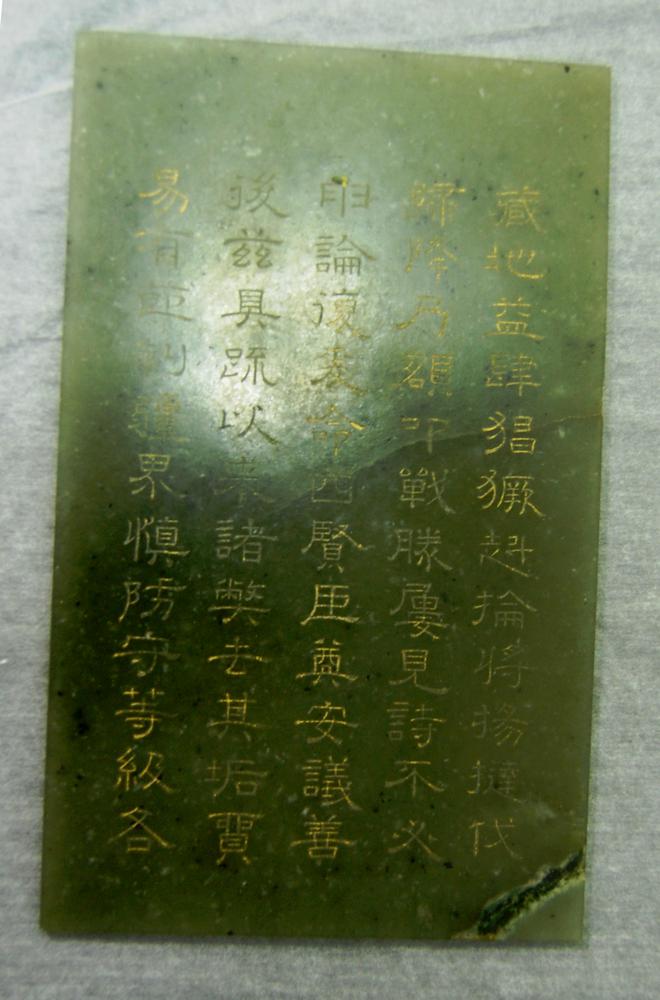 藏地益肆猖獗赳掄將揚撻伐
歸降乃額叩戰勝屢見詩不必
申論復爰命四賢臣奠安議善
後茲具疏以來諸弊去其垢貿
易有制疆界慎防守等級各